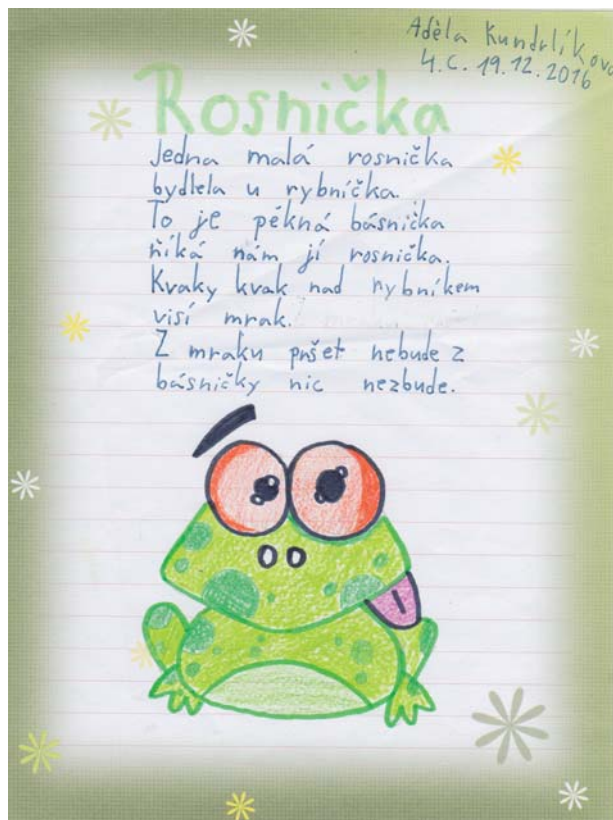 Adéla Kundrlíková
4.C. 19.12.2016
Rosnička
Jedna malá rosnička
bydlela u rybníčka.
To je pěkná básnička
říká nám jí rosnička.
Kvaky kvak nad rybníkem
visí mrak.
Z mraku pršet nebude z
básničky nic nezbude.